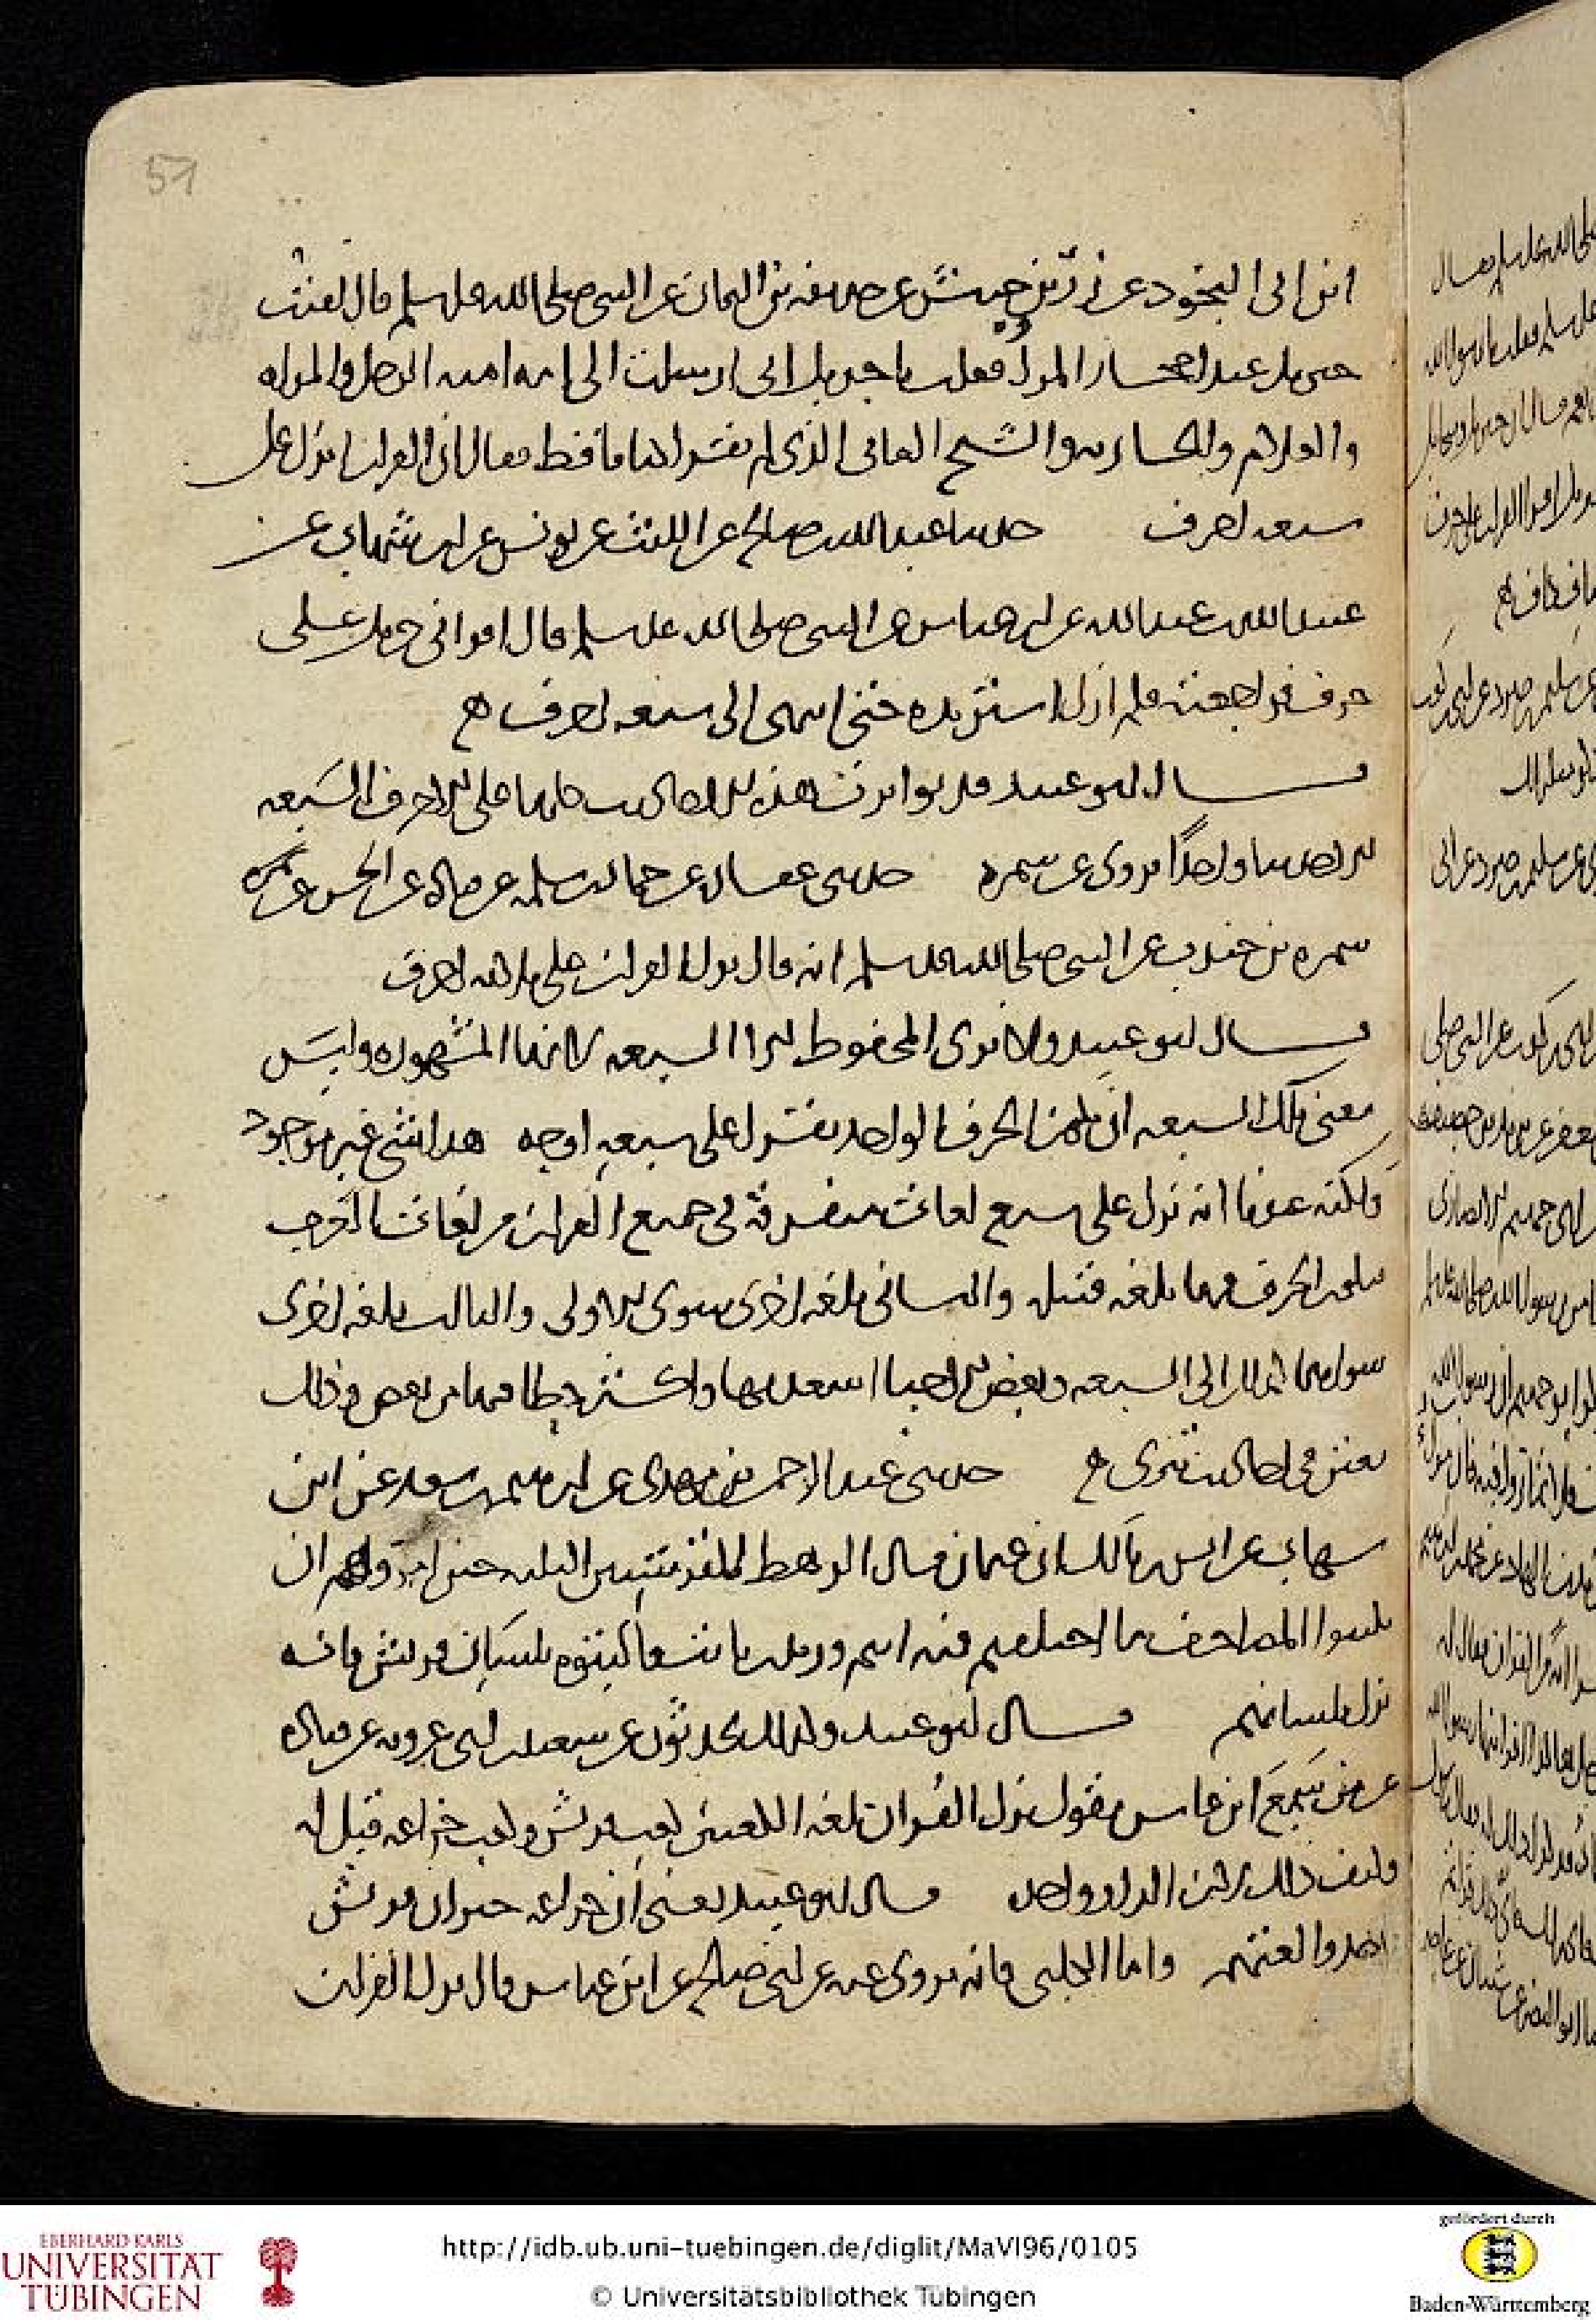 51
ابن ابي النجود عن زر بن حبيش عن حذيفة بن اليمان عن النبي صلى الله عليه وسلم قال لقيت
جبريل عند احجار المراء فقلت يا جبريل اني ارسلت الى امة امية الرجل والمراه
والغلام والجاريه والشيخ العاني الذي لم يقرا كتابا قط فقال ان القران نزل على
سبعه احرف حدثنا عبد الله بن صالح عن الليث عن يونس عن ابن شهاب عن
عبيد الله بن عبد الله عن ابن عباس عن النبي صلى الله عليه وسلم قال اقراني جبريل على
حرف فراجعته فلم ازل استزيده حتى انتهى الى سبعه احرف
قال ابو عبيد قد تواترت هذه الاحاديث كلها على الاحرف السبعه
الا حديثا واحدا يروى عن سمره حدثني عفان عن حماد بن سلمه عن قتاده عن الحسن عن
سمره بن جندب عن النبي صلى الله عليه وسلم انه قال نزل القران على ثلاثه احرف
قال ابو عبيد ولا نرى المحفوظ الا السبعه لانها المشهوره وليس
معنى تلك السبعه ان يكون الحرف الواحد يقرا على سبعه اوجه هذا شي غير موجود
ولكنه عندنا انه نزل على سبع لغات متفرقه في جميع القران من لغات العرب
فيكون الحرف منها بلغه قبيله والثاني بلغه اخرى سوى الاولى والثالث بلغه اخرى
سواهما كذلك الى السبعه وبعض الاحيا اسعد بها واكثر حظا فيها من بعض وذلك
بين في احاديث تترى حدثني عبد الرحمن بن مهدي عن ابرهيم بن سعد عن ابن
شهاب عن انس بن مالك ان عثمان قال للرهط القرشيين الثلثه حين امرهم ان
يكتبوا المصاحف ما اختلفتم فيه انتم وزيد بن ثابت فاكتبوه بلسان قريش فانه
نزل بلسانهم قال ابو عبيد وكذلك يحدثون عن سعيد بن ابي عروبه عن قتاده
عن من سمع ابن عباس يقول نزل القران بلغه الكعبين كعب قريش وكعب خزاعه قيل له
وكيف ذلك قال لان الدار واحده قال ابو عبيد يعني ان خزاعه جيران قريش
اخذوا لغتهم واما الكلبي فانه يروى عنه عن ابي صالح عن ابن عباس قال نزل القران
EBERHARD KARLS
UNIVERSITÄT
TÜBINGEN
http://idb.ub.uni-tuebingen.de/diglit/MaVI96/0105
© Universitätsbibliothek Tübingen
gefördert durch
Baden-Württemberg